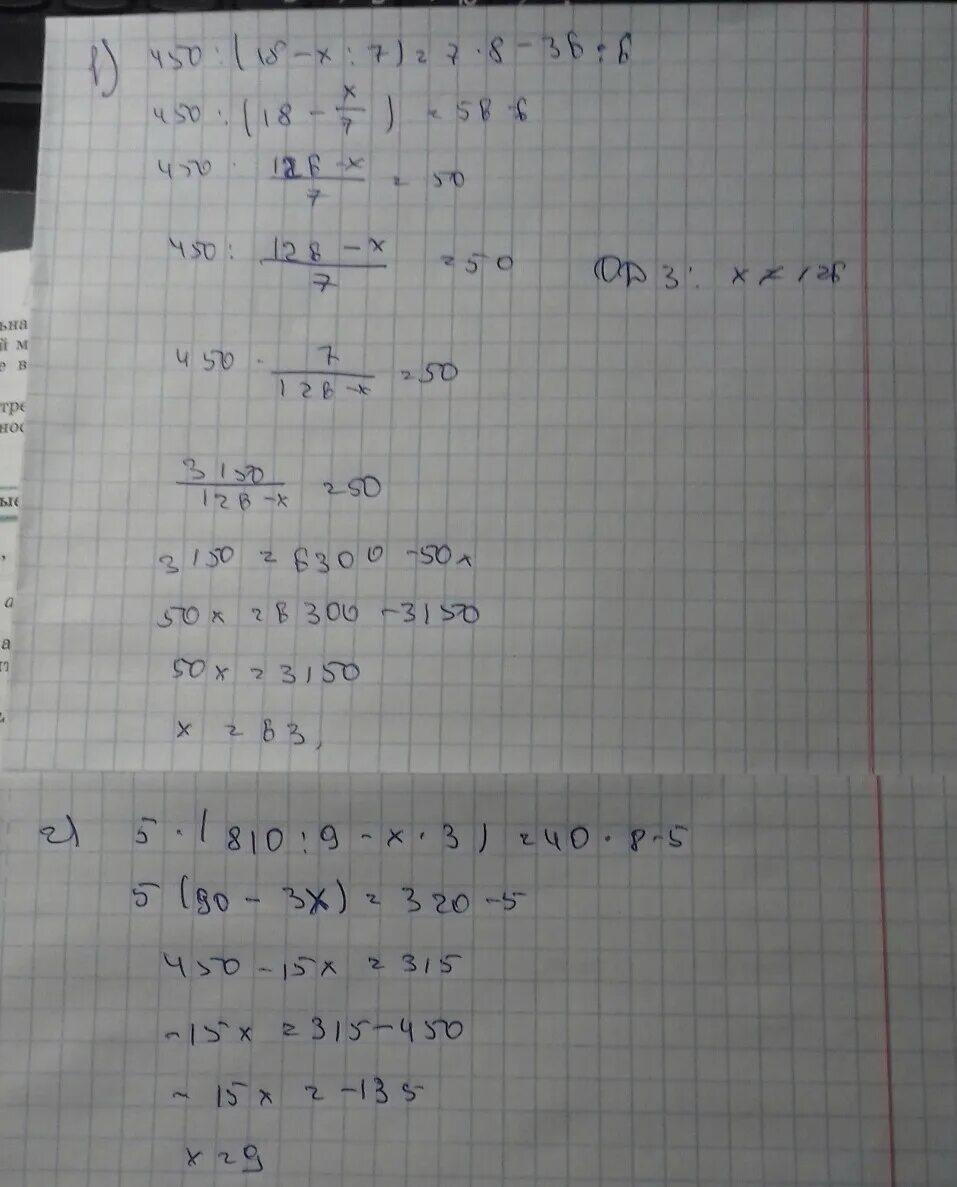 в) 450 : (18 - x : 7) = 7 · 8 - 36 : 6
450 : (18 - x/7) = 56 - 6
450 · (126 - x)/7 = 50
450 : (126 - x)/7 = 50 ОДЗ: x ≠ 126
450 · 7/(126 - x) = 50
3150/(126 - x) = 50
3150 = 6300 - 50x
50x = 6300 - 3150
50x = 3150
x = 63,
г) 5 · (810 : 9 - x · 3) = 40 · 8 - 5
5 (90 - 3x) = 320 - 5
450 - 15x = 315
-15x = 315 - 450
- 15x = -135
x = 9
ьна
й м
е в
тре
нос
ые
а
а